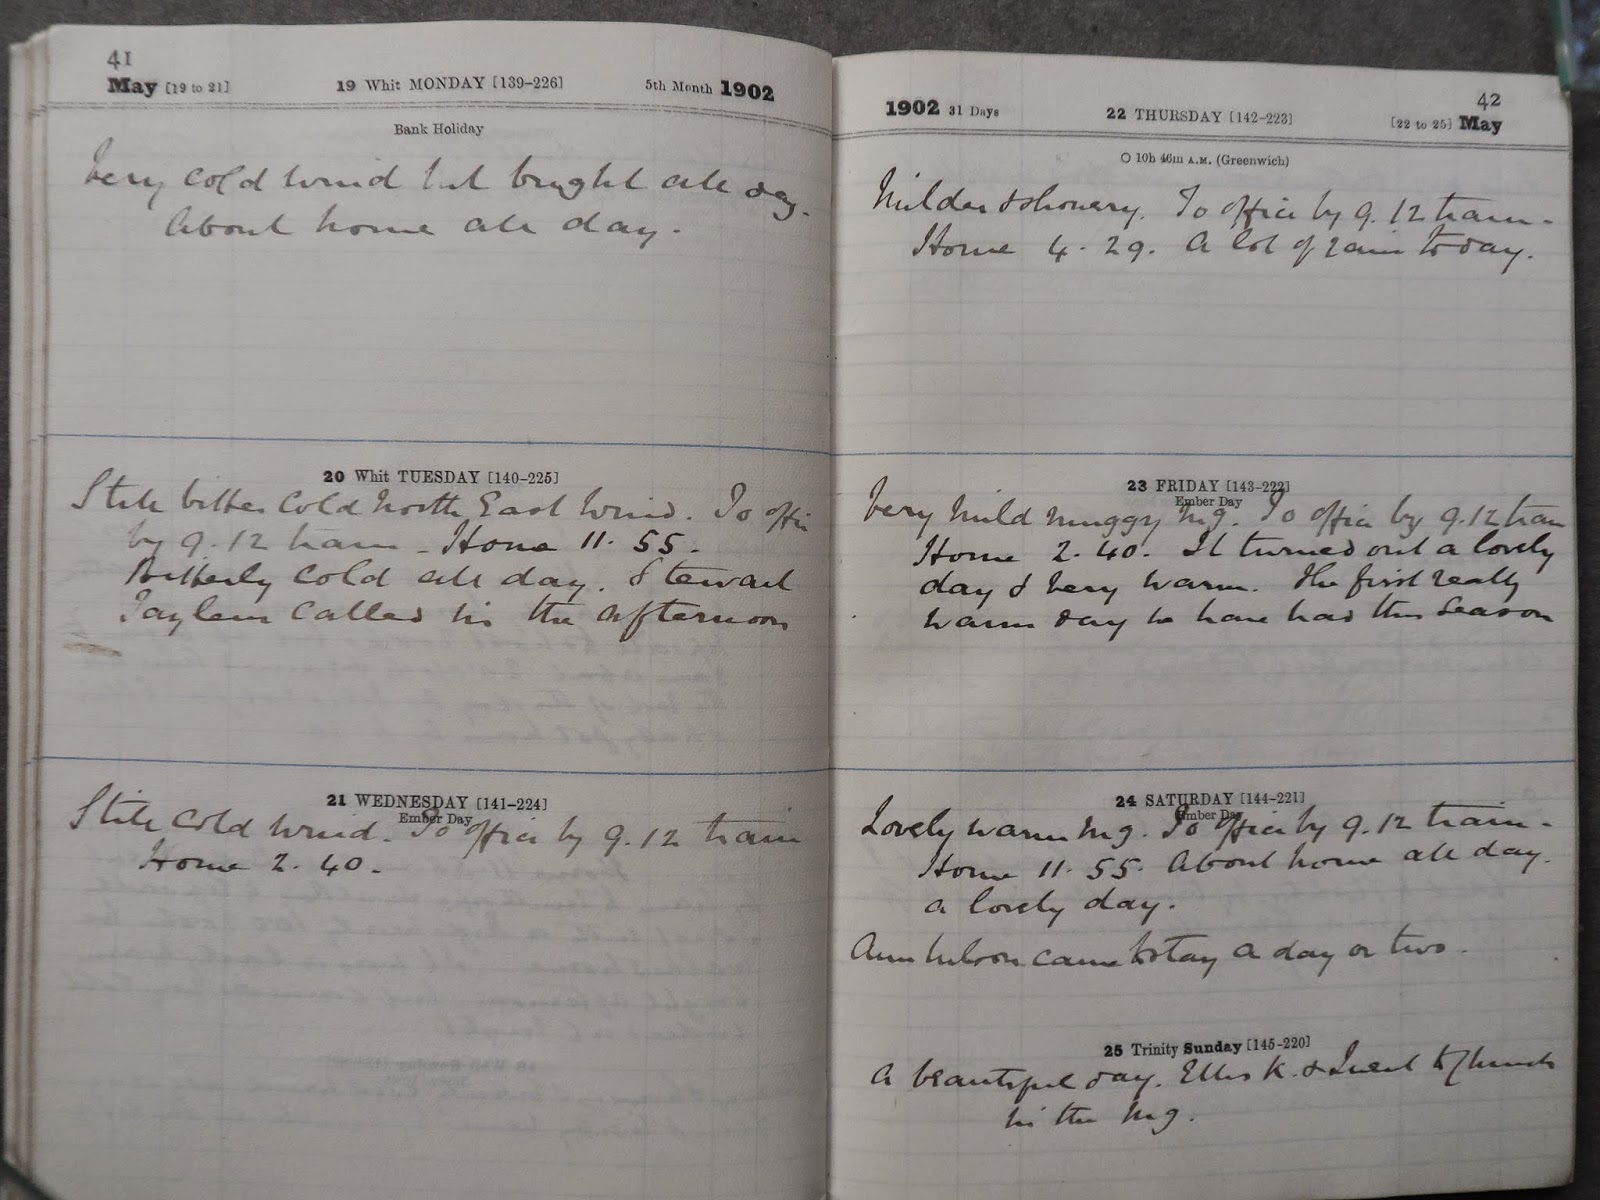 41
May [19 to 21] 19 Whit MONDAY [139-226] 5th Month 1902
Bank Holiday
Very cold wind but bright all day.
About home all day.
20 Whit TUESDAY [140-225]
Still bitter cold North East Wind. To office
by 9.12 train - Home 11.55.
Bitterly cold all day. Stewart
called in the afternoon
21 WEDNESDAY [141-224]
Ember Day
Still cold wind. To office by 9.12 train
Home 2.40.
42
1902 31 Days 22 THURSDAY [142-223] [22 to 25] May
O 10h 46m A.M. (Greenwich)
Milder & showery. To office by 9.12 train -
Home 4.29. A lot of rain today.
23 FRIDAY [143-222]
Ember Day
Very mild muggy mg. To office by 9.12 train
Home 2.40. It turned out a lovely
day & very warm. The first really
warm day we have had this season
24 SATURDAY [144-221]
Ember Day
Lovely warm mg. To office by 9.12 train -
Home 11.55. About home all day.
a lovely day.
came to stay a day or two.
25 Trinity Sunday [145-220]
A beautiful day. K. & I went to church
in the mg.